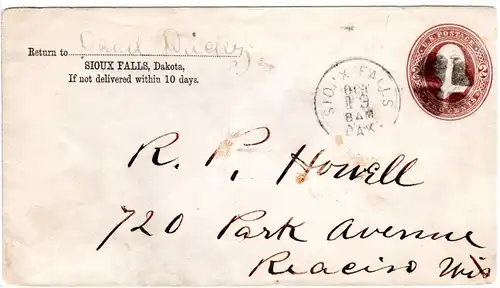 Return to
SIOUX FALLS, Dakota,
If not delivered within 10 days.
SIOUX FALLS
8AM
DAK
U.S. POSTAGE
R. P. Howell
720 Park Avenue
Wis